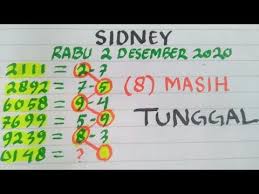 SIDNEY
RABU 2 DESEMBER 2020
2111 = 2-7
2892 = 7-5
(8) MASIH
6058 = 9-4
TUNGGAL
7699 = 5-9
9239 = 8-3
0148 = ?